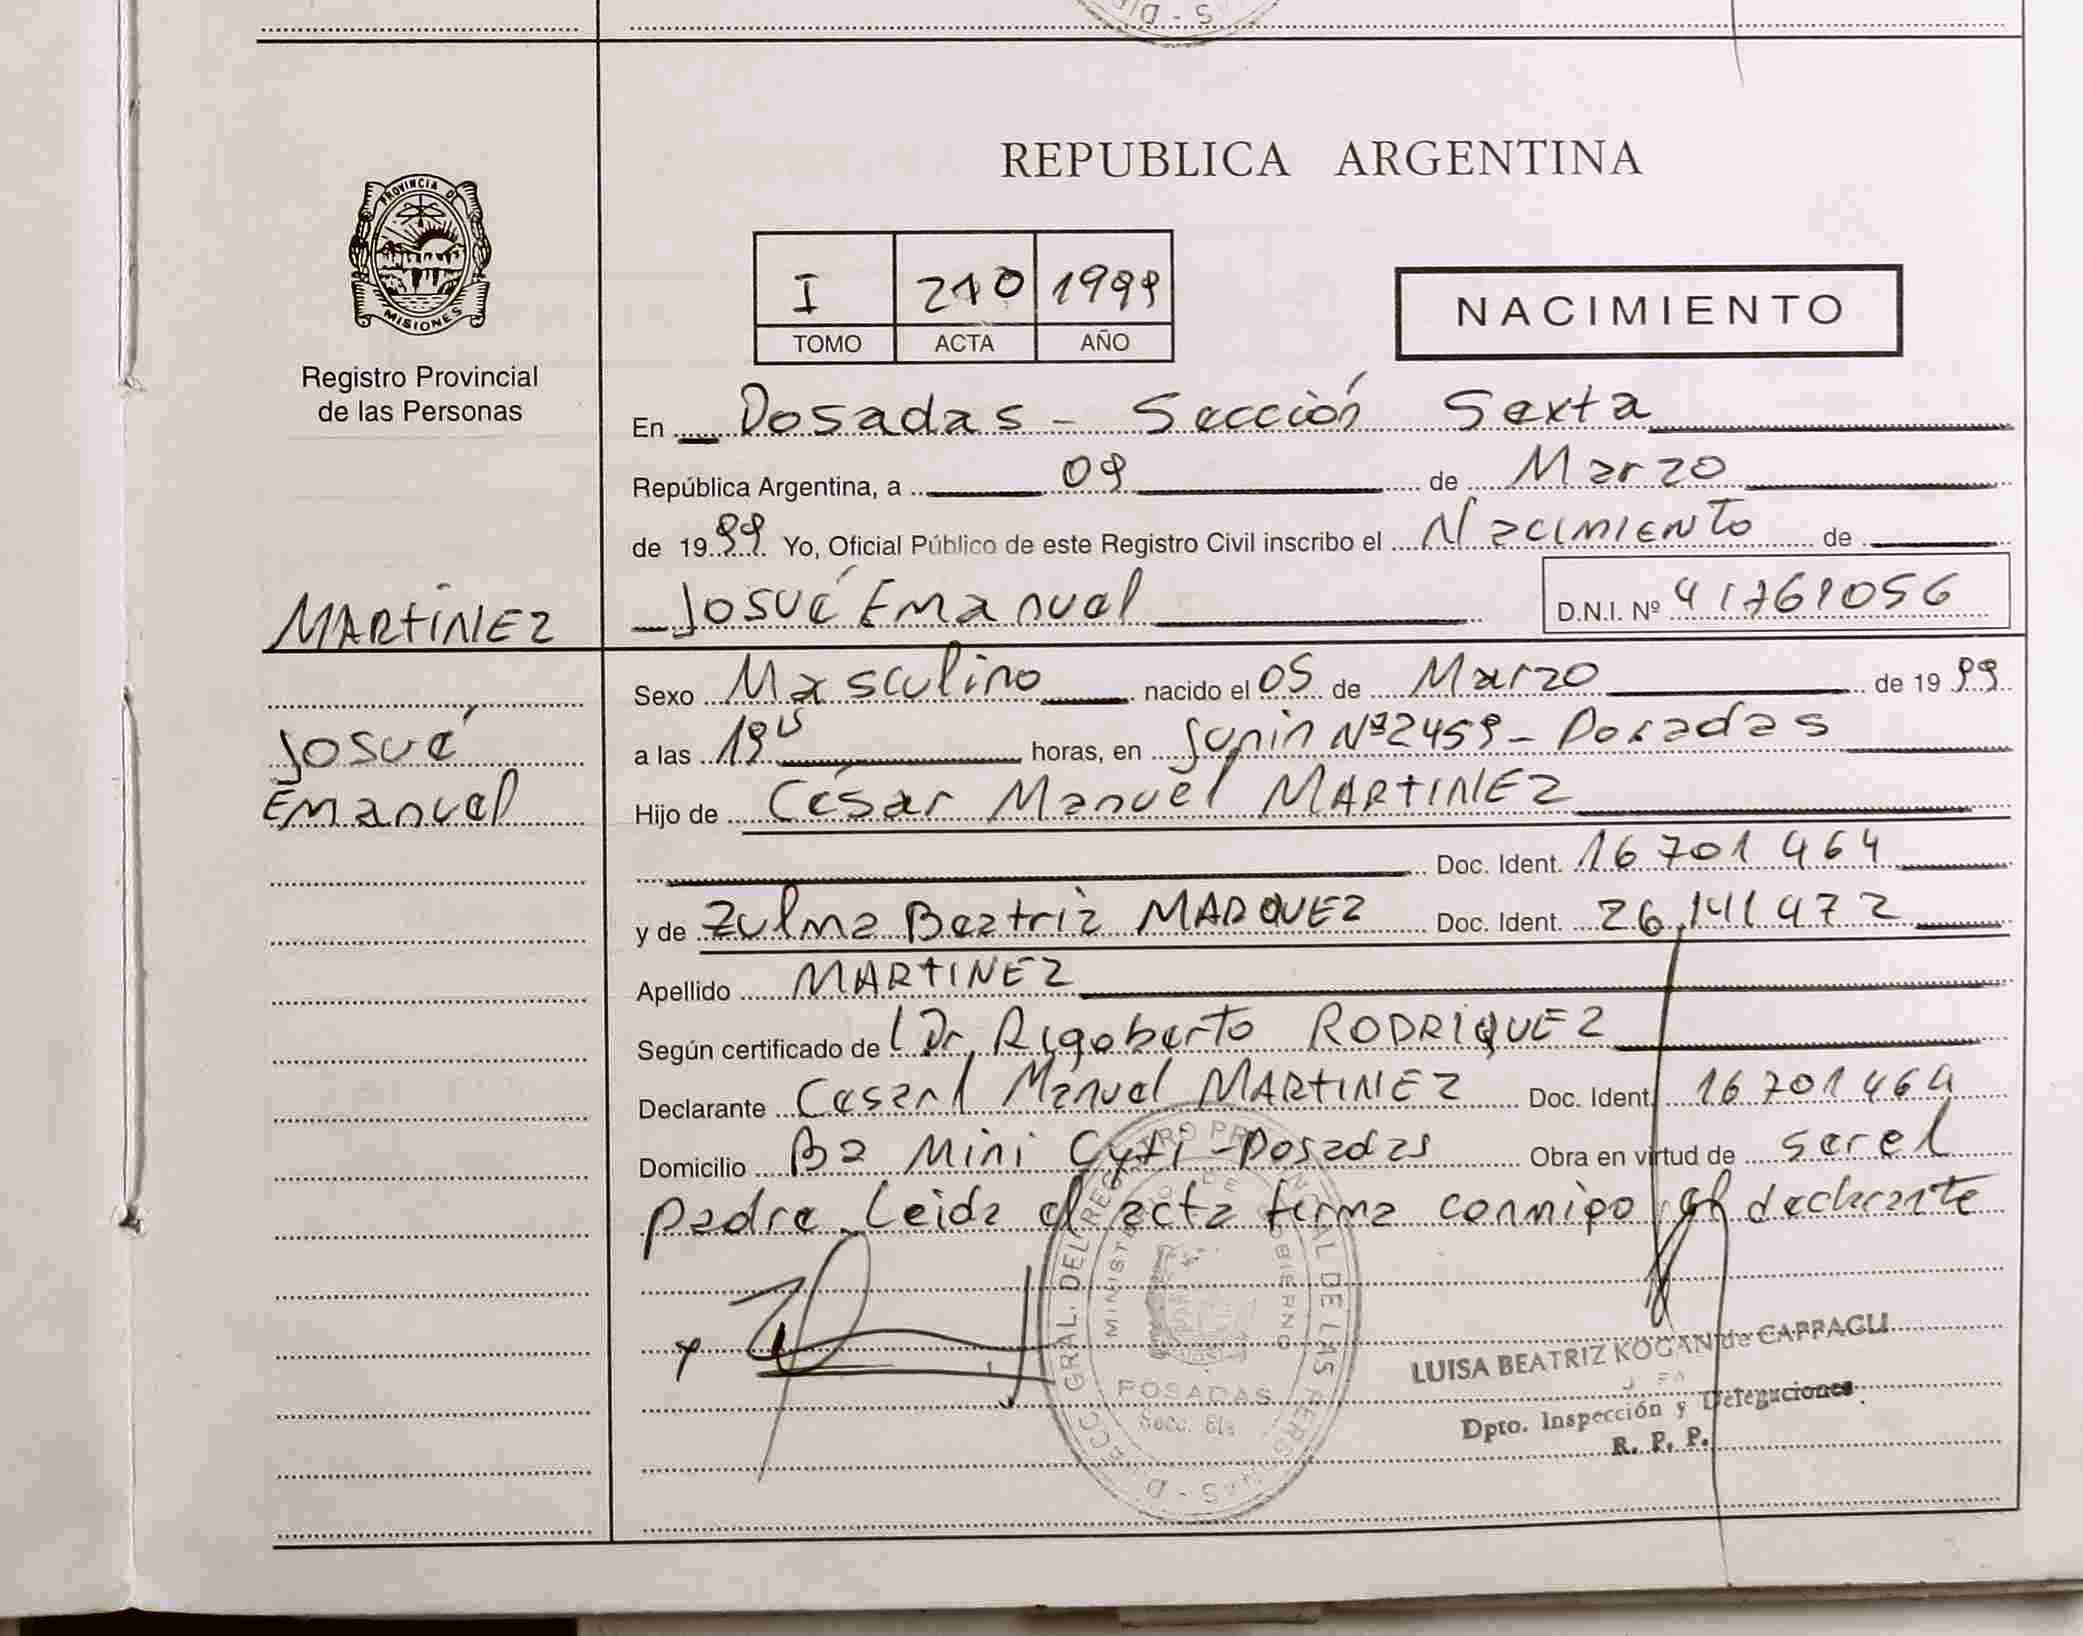 PROVINCIA DE
MISIONES
Registro Provincial
de las Personas
REPUBLICA ARGENTINA
I 210 1999
TOMO ACTA AÑO
NACIMIENTO
En Posadas - Sección Sexta
República Argentina, a 09 de Marzo
de 1999 Yo, Oficial Público de este Registro Civil inscribo el Nacimiento de
MARTíNEZ
Josué Emanuel D.N.I. Nº 41761056
Sexo Masculino nacido el 05 de Marzo de 1999
Josué
a las 19 horas, en Junin Nº2459 - Posadas
Emanuel
Hijo de César Manuel MARTINEZ
Doc. Ident. 16 701 464
y de Zulma Beatriz MARQUEZ Doc. Ident. 26.141.472
Apellido MARTINEZ
Según certificado de Dr Rigoberto RODRIGUEZ
Declarante Manuel MARTINEZ Doc. Ident. 16 701 464
Domicilio Ba Mini City - Posadas Obra en virtud de ser el
padre Leida el acta firma conmigo el declarante
MINISTERIO DE GOBIERNO
POSADAS
Secc. 6ta
LUISA BEATRIZ KOGAN de
Dpto. Inspección y Delegaciones
R. P. P.